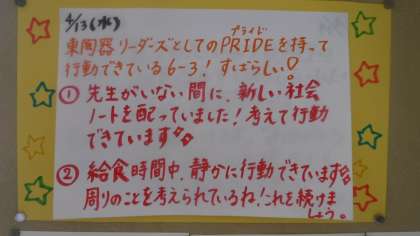 4/13(水)
プライド
東陶器リーダーズとしてのPRIDEを持って
行動できている6-3！すばらしい！
① 先生がいない間に、新しい社会
ノートを配っていました！考えて行動
できています
② 給食時間中、静かに行動できています
周りのことを考えられているね！これを続けま
しょう。